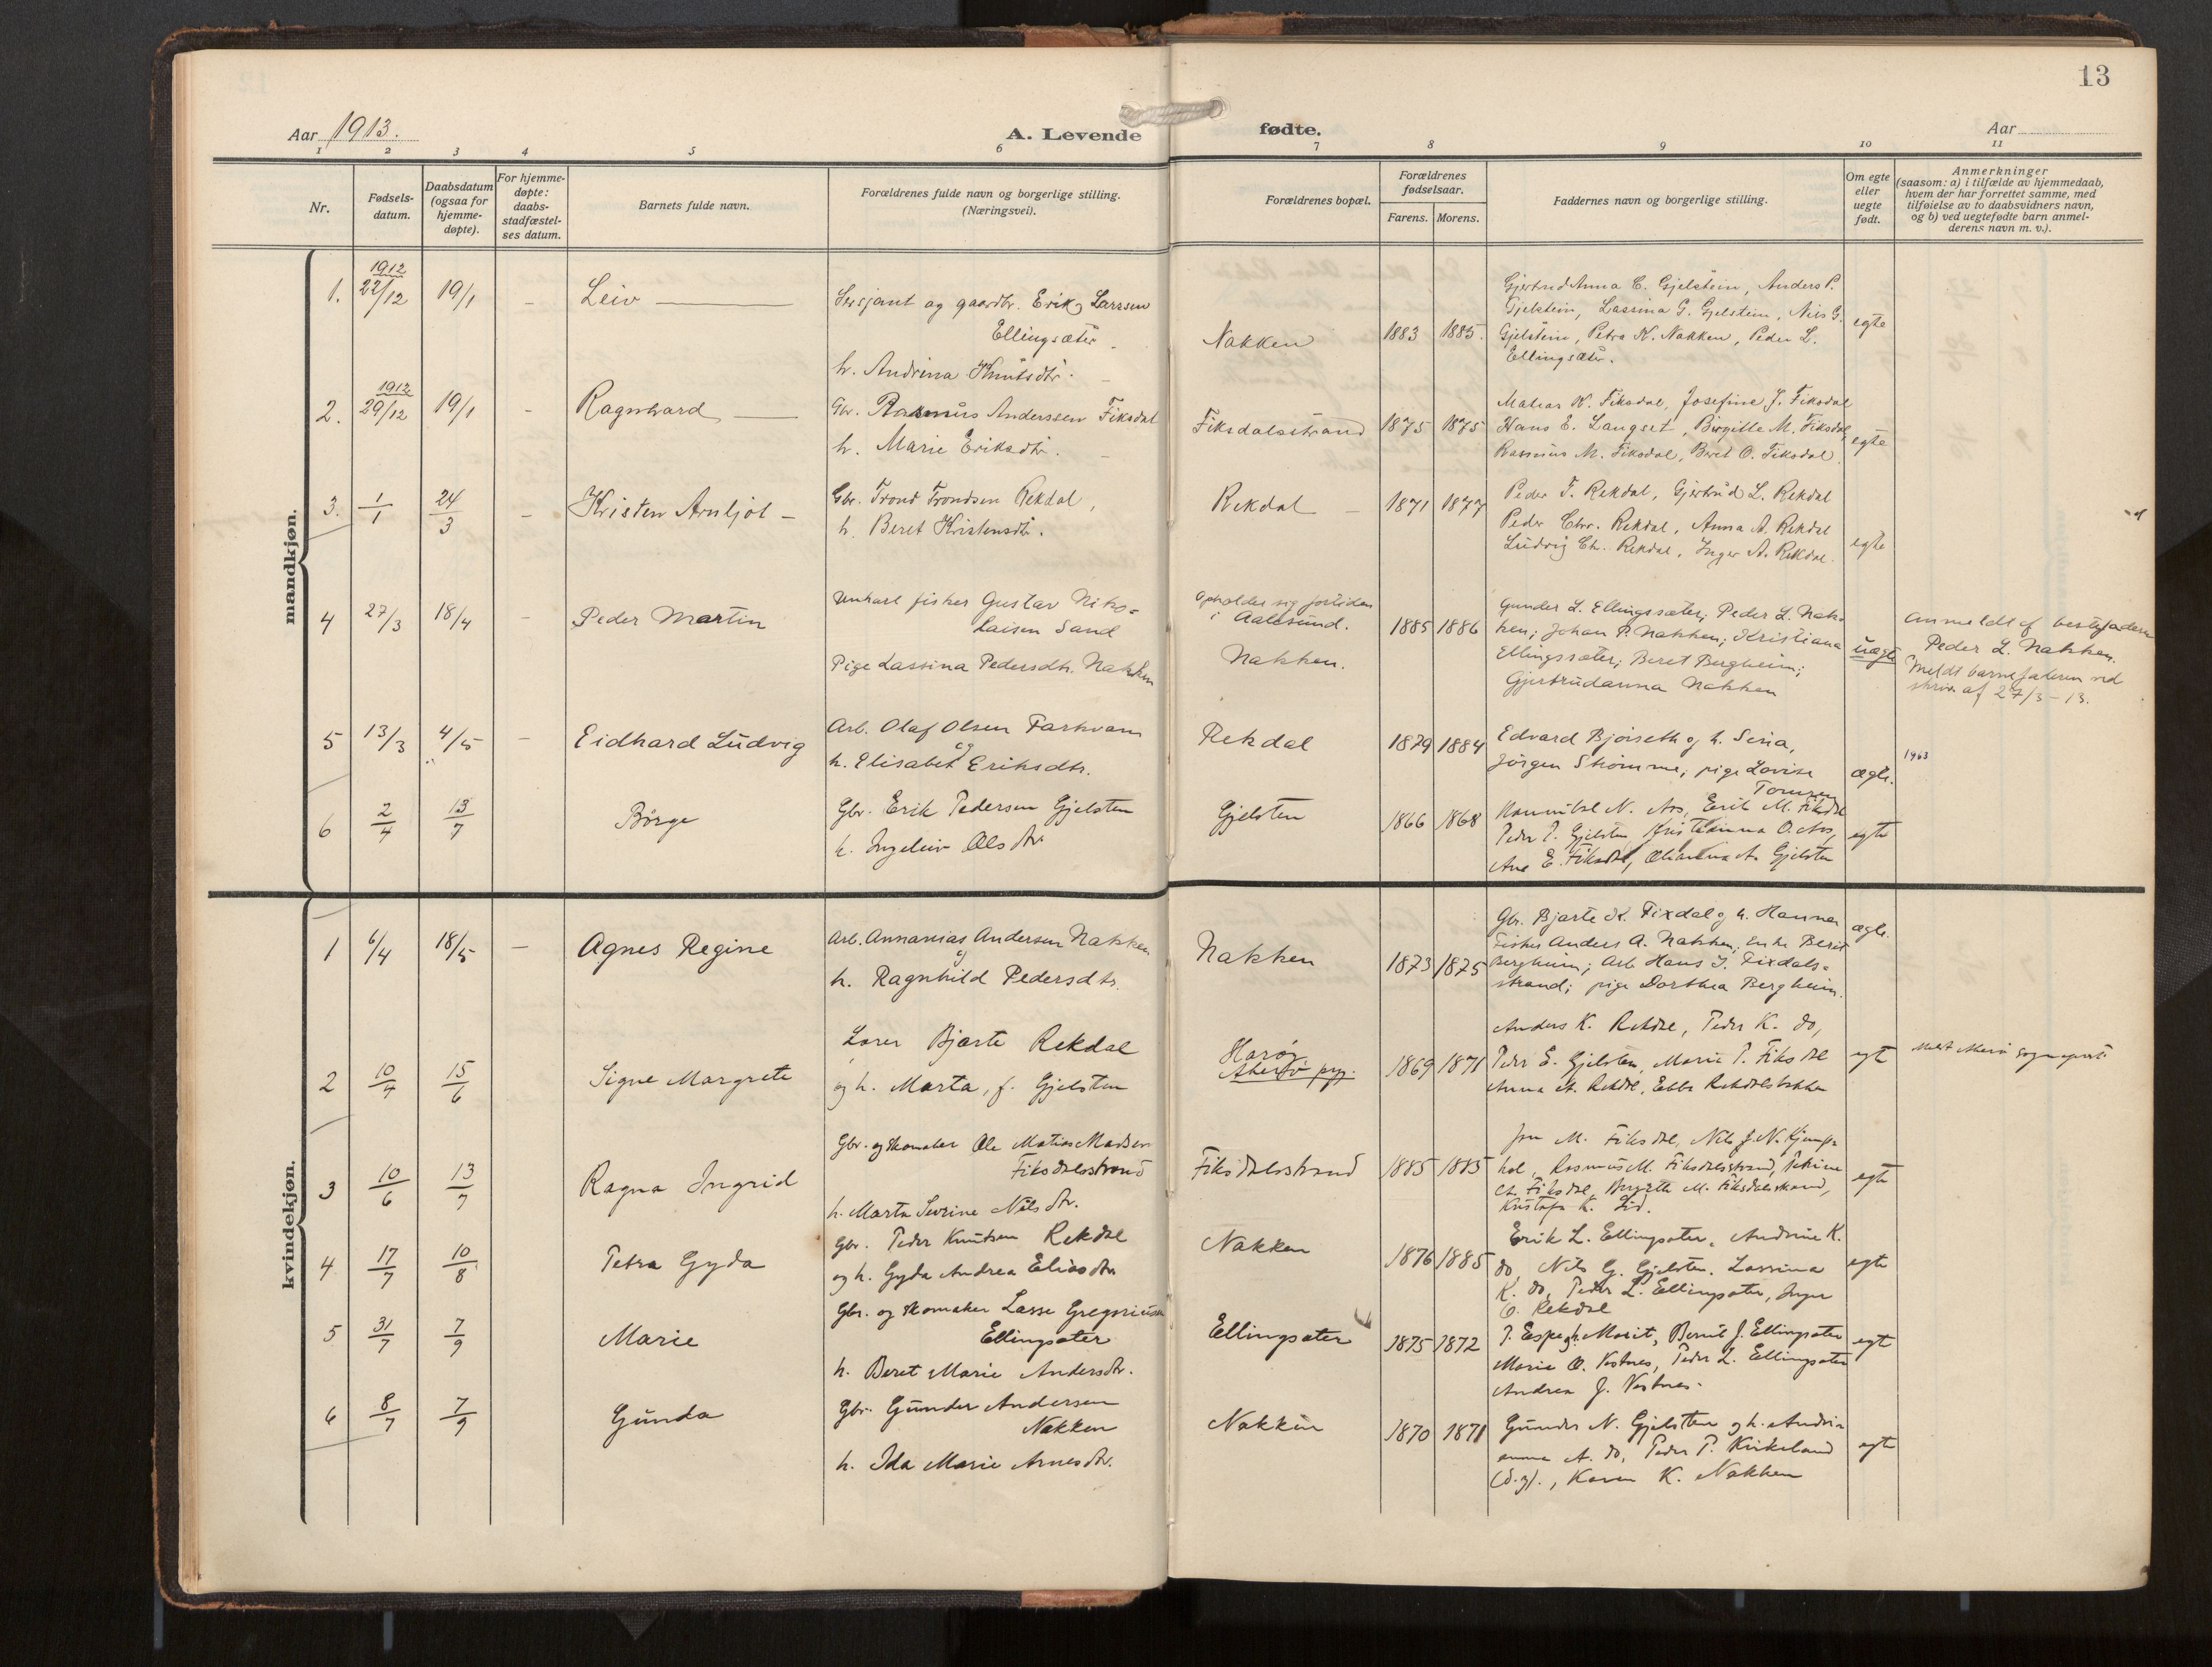 13
Aar 1913.
A. Levende
fødte.
Aar
1 2 3 4 5 6 7 8 9 10 11
Nr.
Fødsels-
datum.
Daabsdatum
(ogsaa for
hjemme-
døpte).
For hjemme-
døpte:
daabs-
stadfæstel-
ses datum.
Barnets fulde navn.
Forældrenes fulde navn og borgerlige stilling.
(Næringsvei).
Forældrenes bopæl.
Forældrenes
fødselsaar.
Farens.
Morens.
Faddernes navn og borgerlige stilling.
Om egte
eller
uegte
født.
Anmerkninger
(saasom: a) i tilfælde av hjemmedaab,
hvem der har forrettet samme, med
tilføielse av to daabsvidners navn,
og b) ved uegtefødte barn anmel-
derens navn m. v.).
mandkjøn.
1. 1912 22/12 19/1 - Leiv
Sersjant og gaardbr. Erik Larssen
Ellingsæter.
h. Andrina Knutsdtr.
Nakken 1883 1885.
Gjertrud Anna C. Gjelstein, Anders P.
Gjelstein, Lassina G. Gjelstein, Nils G.
Gjelstein, Petra K. Nakken, Peder L.
Ellingsæter.
egte
2. 1912 29/12 19/1 - Ragnhard
Gbr. Rasmus Anderssen Fiksdal
h. Marie Eriksdtr.
Fiksdalsstrand 1875 1875
Matias N. Fiksdal, Josefine J. Fiksdal
Hans E. Langset, Birgitte M. Fiksdal,
Rasmus M. Fiksdal, Beret O. Fiksdal.
egte
3. 1/1 24/3 - Kristen Arnljot -
Gbr. Trond Trondsen Rekdal,
h. Beret Kristensdtr.
Rekdal 1871 1877
Peder T. Rekdal, Gjertrud L. Rekdal
Peder Chr. Rekdal, Anna A. Rekdal
Ludvig Ch. Rekdal, Inger A. Rekdal.
egte
4 27/3 18/4 - Peder Martin
Unkarl fisker Gustav Niko-
laisen Sand
Pige Lassina Pedersdtr. Nakken
Opholder sig fortiden
i Aalesund.
Nakken.
1885 1886
Gunder L. Ellingssæter; Peder L. Nak-
ken; Johan P. Nakken; Kristiana
Ellingssæter; Beret Bergheim;
Gjertrudanna Nakken
uægte
Anmeldt af bestefaderen
Peder L. Nakken.
Meldt barnefaderen ved
skriv. af 27/3-13.
5 13/3 4/5 - Eidhard Ludvig
Arb. Olaf Olsen Farkvam
og
h. Elisabet Eriksdtr.
Rekdal 1879 1884
Edvard Bjørseth og h. Seria,
Jörgen Strömme, pige Lovise
Tomren
ægte.
1963
6 2/4 13/7 Børge
Gbr. Erik Pedersen Gjelsten
h. Ingeleiv Olsdtr
Gjelsten 1866 1868
Hannibal N. Aas, Erik M. Fiksdal
Peder P. Gjelsten, Kristianna O. Aas,
Ane E. Fiksdal, A. Gjelsten
egte
kvindekjøn.
1 6/4 18/5 - Agnes Regine
Arb. Annanias Andersen Nakken
og
h. Ragnhild Pedersdtr.
Nakken 1873 1875
Gbr. Bjarte K. Fixdal og h. Hanna
Fisker Anders A. Nakken; Enke Berit
Bergheim; Arb Hans J. Fixdals-
strand; pige Dorthea Bergheim.
ægte.
2 10/4 15/6 Signe Margrete
Lærer Bjarte Rekdal
og h. Marta, f. Gjelsten
Harøy
Akerø pgj.
1869 1871
Anders K. Rekdal, Peder K. do,
Peder E. Gjelsten, Marie P. Fiksdal
Anna A. Rekdal, Ebba Rekdalsbakken
egte
Meldt Akerø sogneprest
3 10/6 13/7 Ragna Ingrid
Gbr. og skomaker Ole Matias Madsen
Fiksdalsstrand
h. Marta Sevrine Nilsdtr.
Fiksdalsstrand 1885 1885
M. Fiksdal, Nils J. N.
Rasmus M. Fiksdalsstrand, Petrine
A. Fiksdal, Birgitte M. Fiksdalsstrand,
Kristofa K. Lid.
egte
4 17/7 10/8 Petra Gyda
Gbr. Peder Knutsen Rekdal
og h. Gyda Andrea Eliasdtr.
Nakken 1876 1885
Erik L. Ellingsæter, Andrine K.
do, Nils G. Gjelsten, Lassina
K. do, Peder L. Ellingsæter, Inger
O. Rekdal
egte
5 31/7 7/9 Marie
Gbr. og skomaker Lasse Gregoriusen
Ellingsæter
h. Beret Marie Andersdtr.
Ellingsæter 1875 1872
P. Espe og h. Marit, Bernt J. Ellingsæter
Marie O. Vestnes, Peder L. Ellingsæter
Andrea J. Vestnes.
egte
6 8/7 7/9 Gunda
Gbr. Gunder Andersen
Nakken
h. Ida Marie Arnesdtr.
Nakken 1870 1871
Gunder N. Gjelsten og h. Andri-
anna A. do, Peder P. Kirkeland
(d.y)., Karen K. Nakken
egte